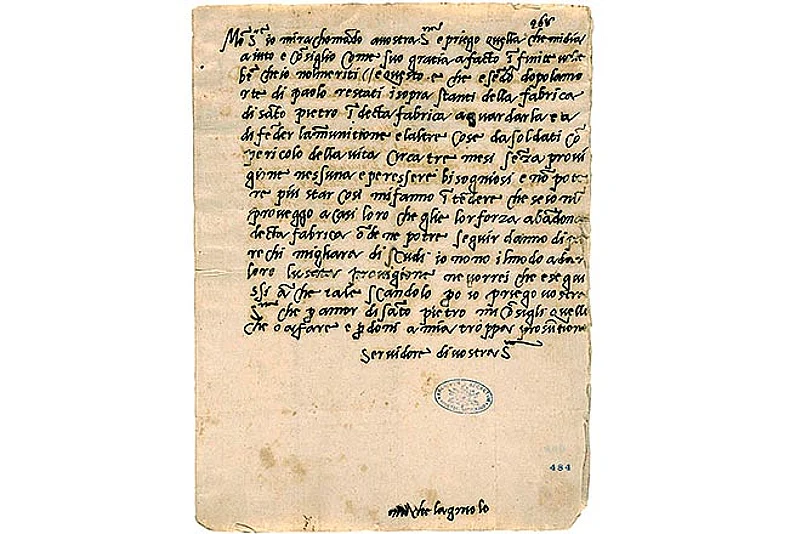 968
Mo S.re io mi rachomado a vostra S.ria e priego quella che mi dia
aiuto e cōsiglio come suo gratia a facto ī finite volte
bē che io nol meriti e questo e che esēdo dopo la mo
rte di paolo restati i sopra stanti della fabrica
di sāto pietro ī decta fabrica a guardarla e a
difēder la munitione e laltre cose da soldati cō
pericolo della vita circa tre mesi sēza provi
gione nessuna e per essere bisogniosi e nō pote
re piu star cosi mi fanno ītēdere che se io nō
proveggo a casi loro che gli e lor forza abādona
decta fabrica ōde ne potre seguir danno di
rechi migliara di scudi io no no il modo a dar
loro provigione ne vorrei che e segui
ssi ā che tale scandolo po io priego vostra
S.ria che p amor di sāto pietro mi cōsigli quello
che o a fare e pdoni a mia troppa prosūtione
Servidore di vostra S.
484
michelagniolo